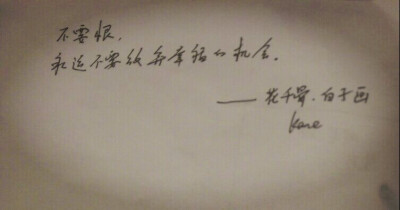 不要恨,
永远不要放弃幸福的机会.
——花千骨.白子画
Kane